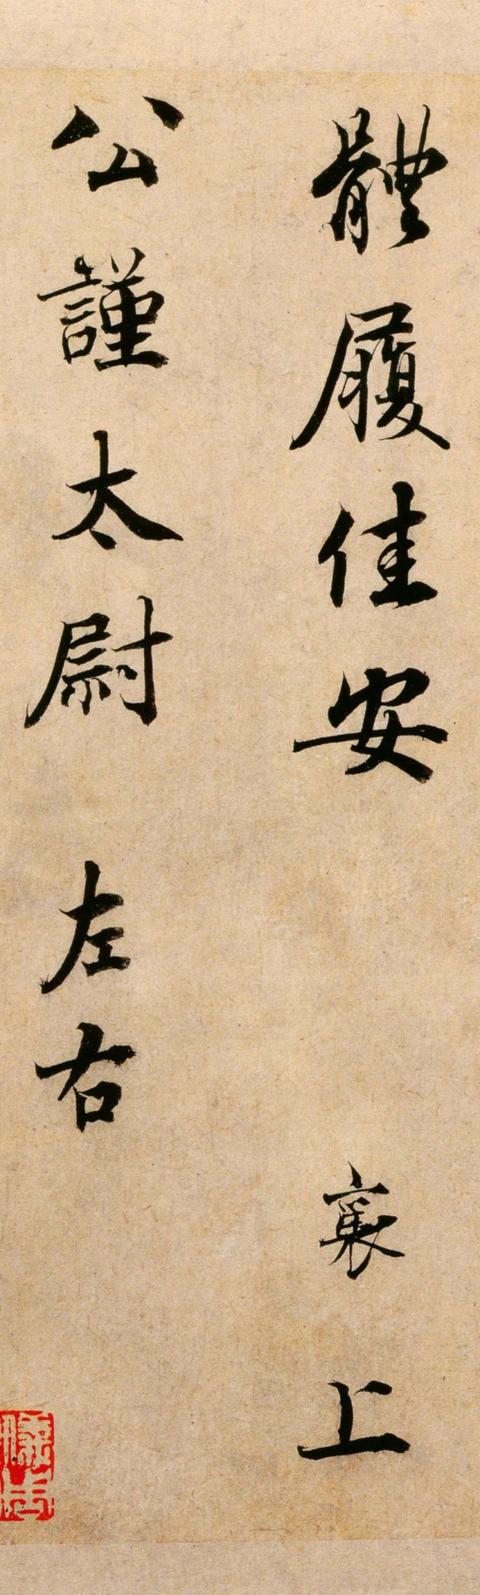 體履佳安襄上
公謹太尉左右